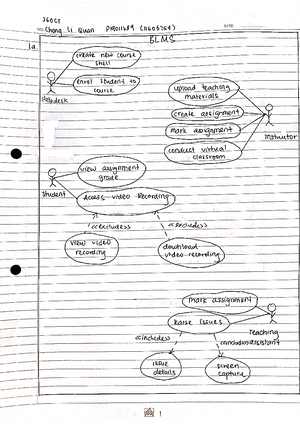 Chong Li Quan
DATE
1a
ELMS
create new course
shell
enrol student to
course
Helpdesk
upload teaching
materials
create assignment
mark assignment
conduct virtual
classroom
Instructor
view assignment
grade
access video Recording
Student
view video
recording
download
video recording
mark assignment
Raise issues
Teaching
assistant
issue
details
screen
capture
1